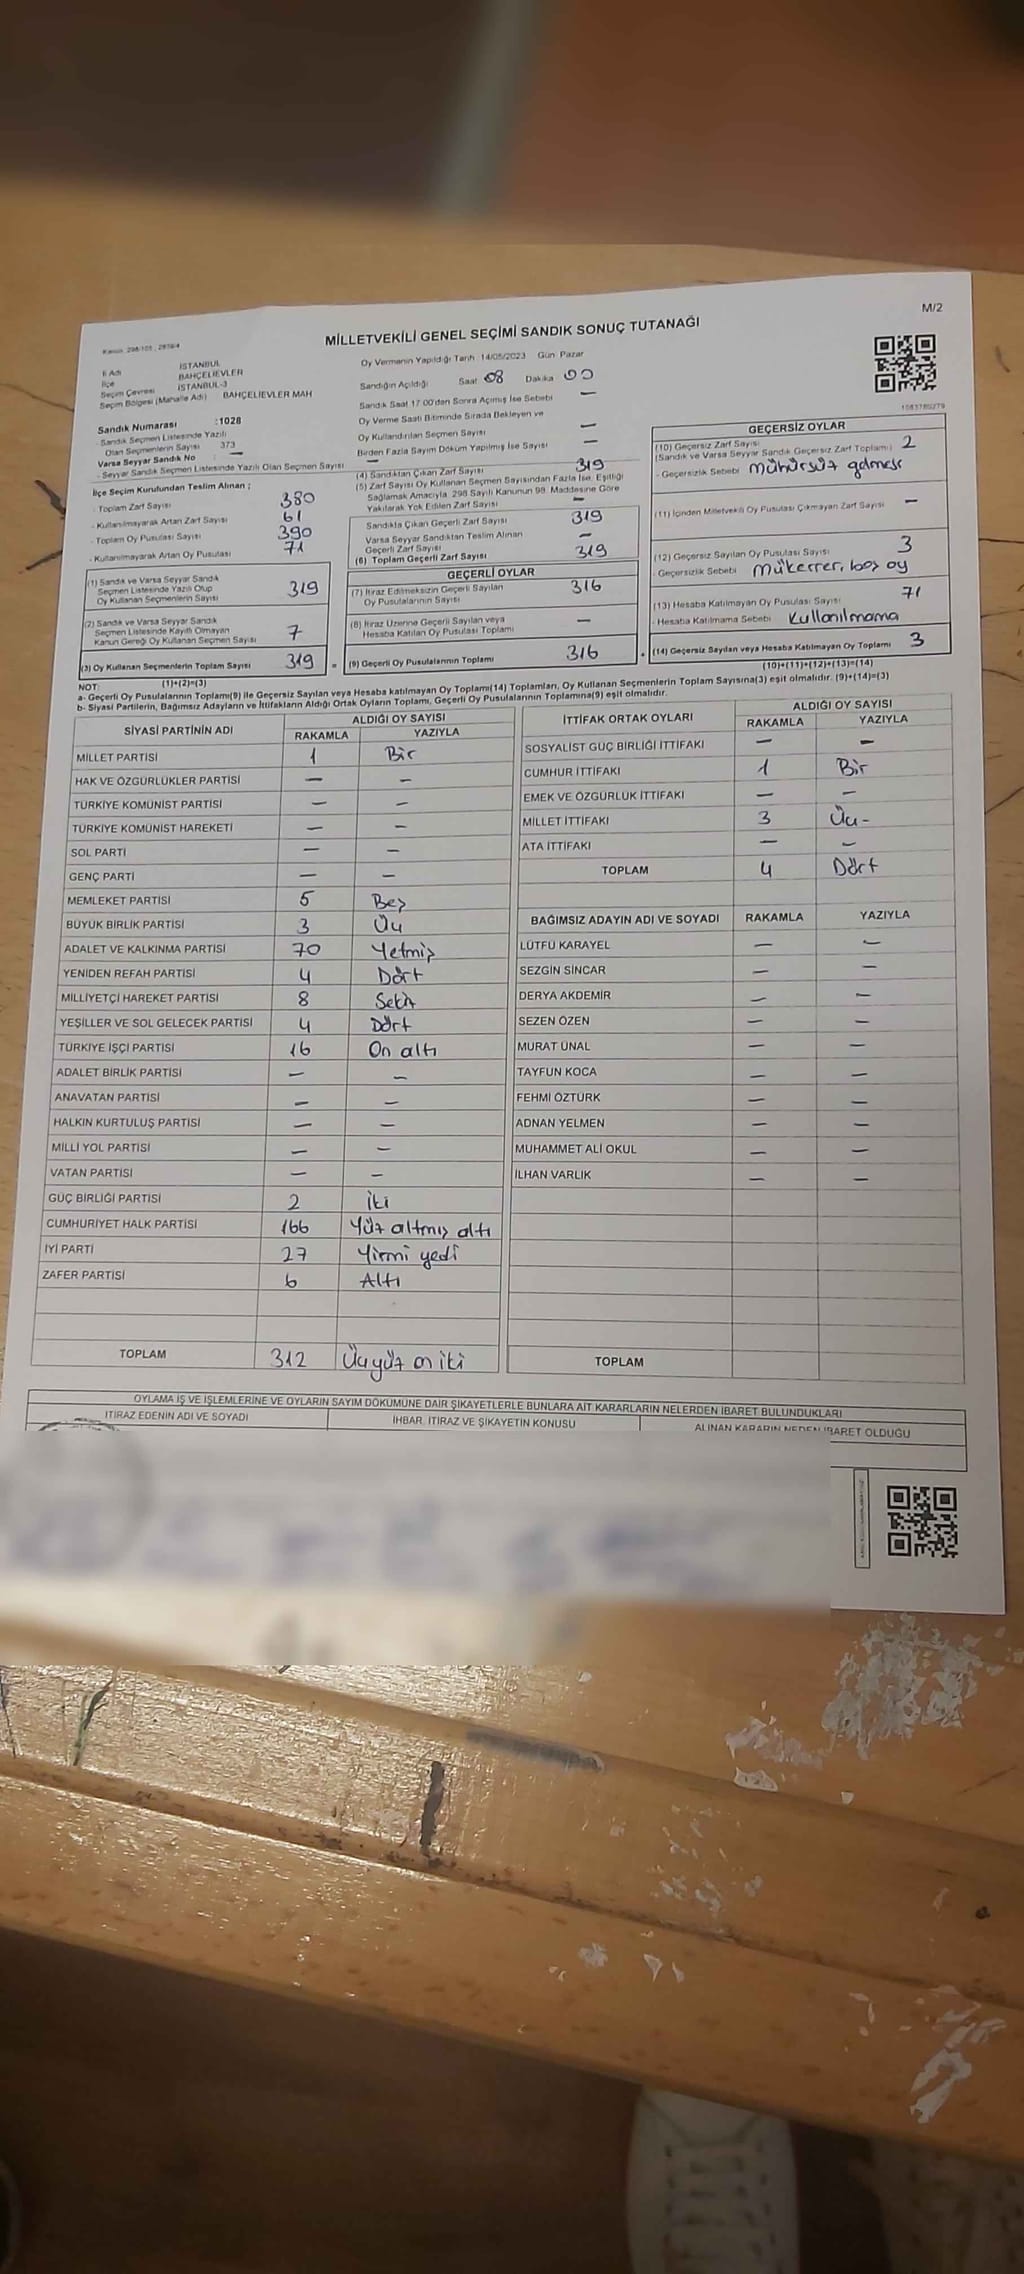 M/2
MİLLETVEKİLİ GENEL SEÇİMİ SANDIK SONUÇ TUTANAĞI
İl Adı İSTANBUL
İlçe BAHÇELİEVLER
Seçim Çevresi İSTANBUL-3
Seçim Bölgesi (Mahalle Adı) BAHÇELİEVLER MAH
Sandık Numarası :1028
- Sandık Seçmen Listesinde Yazılı
Olan Seçmenlerin Sayısı 373
Varsa Seyyar Sandık No : —
- Seyyar Sandık Seçmen Listesinde Yazılı Olan Seçmen Sayısı —
Oy Vermenin Yapıldığı Tarih 14/05/2023 Gün Pazar
Sandığın Açıldığı Saat 08 Dakika 00
Sandık Saat 17:00'den Sonra Açımış İse Sebebi —
Oy Verme Saati Bitiminde Sırada Bekleyen ve
Oy Kullandırılan Seçmen Sayısı —
Birden Fazla Sayım Döküm Yapılmış İse Sayısı —
İlçe Seçim Kurulundan Teslim Alınan ;
- Toplam Zarf Sayısı 380
- Kullanılmayarak Artan Zarf Sayısı 61
- Toplam Oy Pusulası Sayısı 390
- Kullanılmayarak Artan Oy Pusulası 71
(1) Sandık ve Varsa Seyyar Sandık
Seçmen Listesinde Yazılı Olup
Oy Kullanan Seçmenlerin Sayısı 319
(2) Sandık ve Varsa Seyyar Sandık
Seçmen Listesinde Kayıtlı Olmayan
Kanun Gereği Oy Kullanan Seçmen Sayısı 7
(3) Oy Kullanan Seçmenlerin Toplam Sayısı 319
(1)+(2)=(3)
(4) Sandıktan Çıkan Zarf Sayısı 319
(5) Zarf Sayısı Oy Kullanan Seçmen Sayısından Fazla İse, Eşitliği
Sağlamak Amacıyla 298 Sayılı Kanunun 98. Maddesine Göre
Yakılarak Yok Edilen Zarf Sayısı —
Sandıkta Çıkan Geçerli Zarf Sayısı 319
Varsa Seyyar Sandıktan Teslim Alınan
Geçerli Zarf Sayısı —
(6) Toplam Geçerli Zarf Sayısı 319
GEÇERLİ OYLAR
(7) İtiraz Edilmeksizin Geçerli Sayılan
Oy Pusulalarının Sayısı 316
(8) İtiraz Üzerine Geçerli Sayılan veya
Hesaba Katılan Oy Pusulası Toplamı —
(9) Geçerli Oy Pusulalarının Toplamı 316
1083780279
GEÇERSİZ OYLAR
(10) Geçersiz Zarf Sayısı
(Sandık ve Varsa Seyyar Sandık Geçersiz Zarf Toplamı) 2
- Geçersizlik Sebebi mühürsüz gelmesi
(11) İçinden Milletvekili Oy Pusulası Çıkmayan Zarf Sayısı —
(12) Geçersiz Sayılan Oy Pusulası Sayısı 3
- Geçersizlik Sebebi Mükerrer, boş oy
(13) Hesaba Katılmayan Oy Pusulası Sayısı 71
- Hesaba Katılmama Sebebi Kullanılmama
(14) Geçersiz Sayılan veya Hesaba Katılmayan Oy Toplamı 3
(10)+(11)+(12)+(13)=(14)
NOT:
a- Geçerli Oy Pusulalarının Toplamı(9) ile Geçersiz Sayılan veya Hesaba katılmayan Oy Toplamı(14) Toplamları, Oy Kullanan Seçmenlerin Toplam Sayısına(3) eşit olmalıdır. (9)+(14)=(3)
b- Siyasi Partilerin, Bağımsız Adayların ve İttifakların Aldığı Ortak Oyların Toplamı, Geçerli Oy Pusulalarının Toplamına(9) eşit olmalıdır.
SİYASİ PARTİNİN ADI ALDIĞI OY SAYISI
RAKAMLA YAZIYLA
MİLLET PARTİSİ 1 Bir
HAK VE ÖZGÜRLÜKLER PARTİSİ — —
TÜRKİYE KOMÜNİST PARTİSİ — —
TÜRKİYE KOMÜNİST HAREKETİ — —
SOL PARTİ — —
GENÇ PARTİ — —
MEMLEKET PARTİSİ 5 Beş
BÜYÜK BİRLİK PARTİSİ 3 Üç
ADALET VE KALKINMA PARTİSİ 70 Yetmiş
YENİDEN REFAH PARTİSİ 4 Dört
MİLLİYETÇİ HAREKET PARTİSİ 8 Sekiz
YEŞİLLER VE SOL GELECEK PARTİSİ 4 Dört
TÜRKİYE İŞÇİ PARTİSİ 16 On altı
ADALET BİRLİK PARTİSİ — —
ANAVATAN PARTİSİ — —
HALKIN KURTULUŞ PARTİSİ — —
MİLLİ YOL PARTİSİ — —
VATAN PARTİSİ — —
GÜÇ BİRLİĞİ PARTİSİ 2 İki
CUMHURİYET HALK PARTİSİ 166 Yüz altmış altı
İYİ PARTİ 27 Yirmi yedi
ZAFER PARTİSİ 6 Altı
TOPLAM 312 Üçyüz on iki
İTTİFAK ORTAK OYLARI ALDIĞI OY SAYISI
RAKAMLA YAZIYLA
SOSYALİST GÜÇ BİRLİĞİ İTTİFAKI — —
CUMHUR İTTİFAKI 1 Bir
EMEK VE ÖZGÜRLÜK İTTİFAKI — —
MİLLET İTTİFAKI 3 Üç -
ATA İTTİFAKI — —
TOPLAM 4 Dört
BAĞIMSIZ ADAYIN ADI VE SOYADI RAKAMLA YAZIYLA
LÜTFÜ KARAYEL — —
SEZGİN SİNCAR — —
DERYA AKDEMİR — —
SEZEN ÖZEN — —
MURAT ÜNAL — —
TAYFUN KOCA — —
FEHMİ ÖZTÜRK — —
ADNAN YELMEN — —
MUHAMMET ALİ OKUL — —
İLHAN VARLIK — —
TOPLAM
OYLAMA İŞ VE İŞLEMLERİNE VE OYLARIN SAYIM DÖKÜMÜNE DAİR ŞİKAYETLERLE BUNLARA AİT KARARLARIN NELERDEN İBARET BULUNDUKLARI
İTİRAZ EDENİN ADI VE SOYADI İHBAR, İTİRAZ VE ŞİKAYETİN KONUSU ALINAN KARARIN NEDEN İBARET OLDUĞU